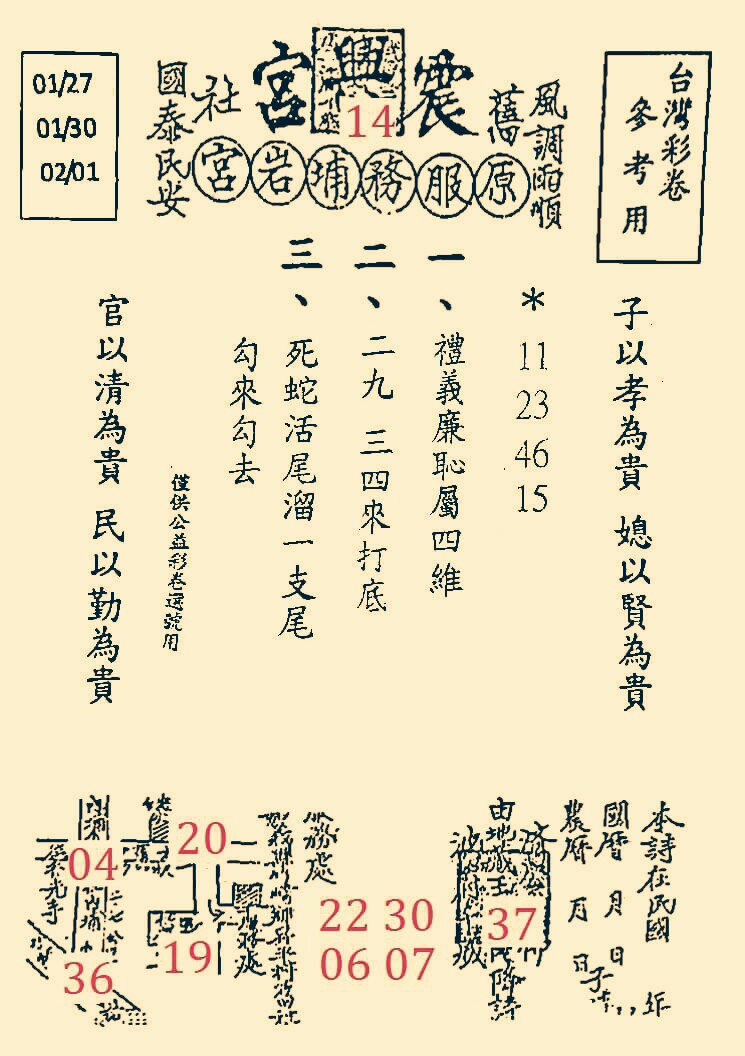 台灣彩卷
參考用
震興宮
14
舊
社
風調雨順
國泰民安
原服務埔岩宮
01/27
01/30
02/01
子以孝為貴 媳以賢為貴
*
11
23
46
15
一、禮義廉恥屬四維
二、二九 三四來打底
三、死蛇活尾溜一支尾
勾來勾去
僅供公益彩卷選號用
官以清為貴 民以勤為貴
本詩在民國 年
國曆 月 日
農曆 月 日
由地藏王
降詩
37
服務處
22 30
06 07
20
19
04
36